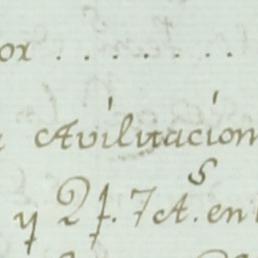 or . . . . . . . .
Avilitacion
y 2f. 7 A.s en